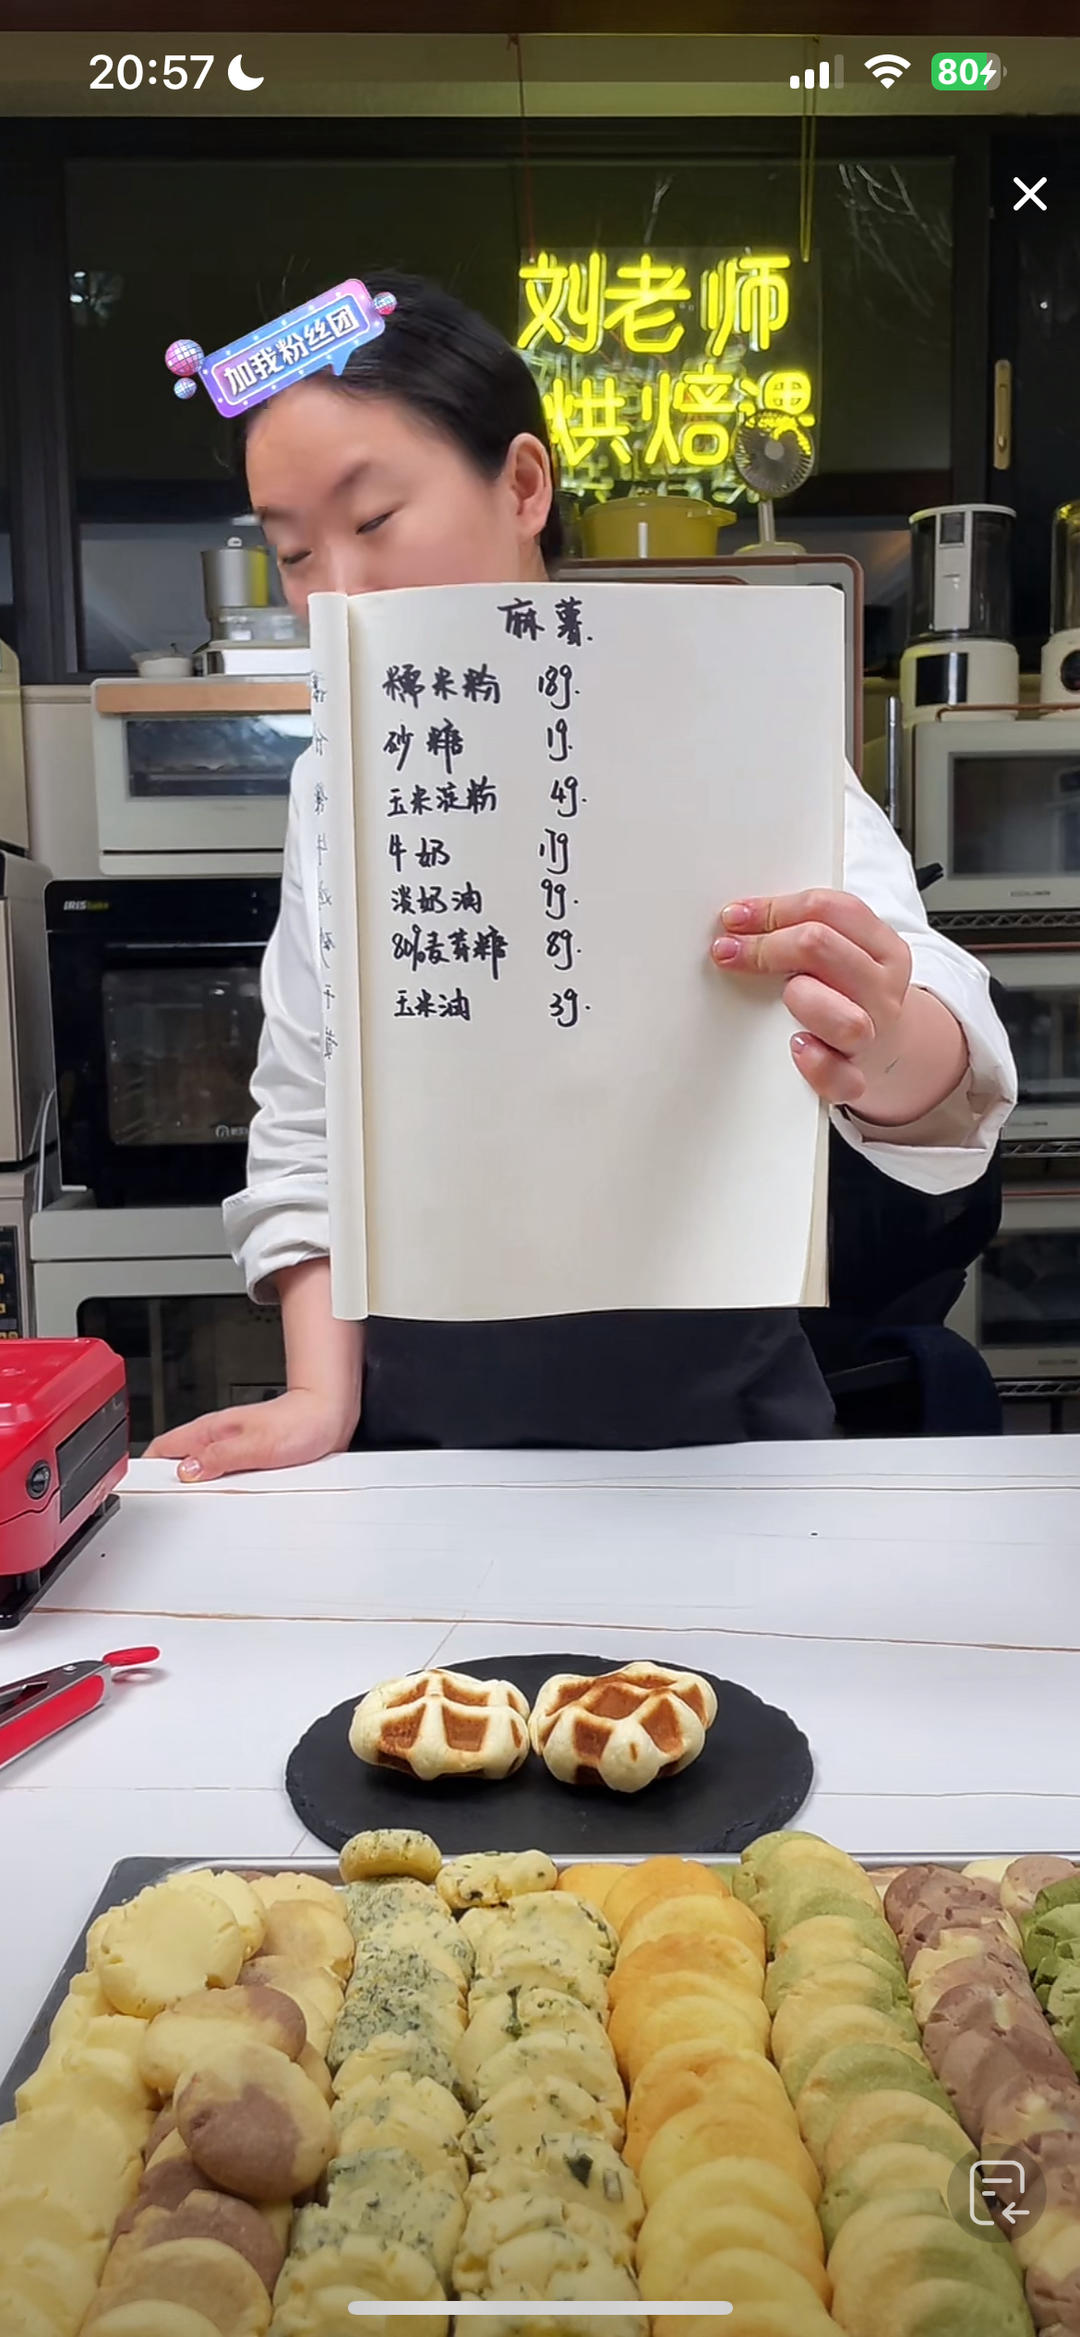 20:57
80
加我粉丝团
刘老师
烘焙课
麻薯.
糯米粉 18g.
砂糖 1g.
玉米淀粉 4g.
牛奶 17g
淡奶油 9g.
80%麦芽糖 8g.
玉米油 3g.
IRIS